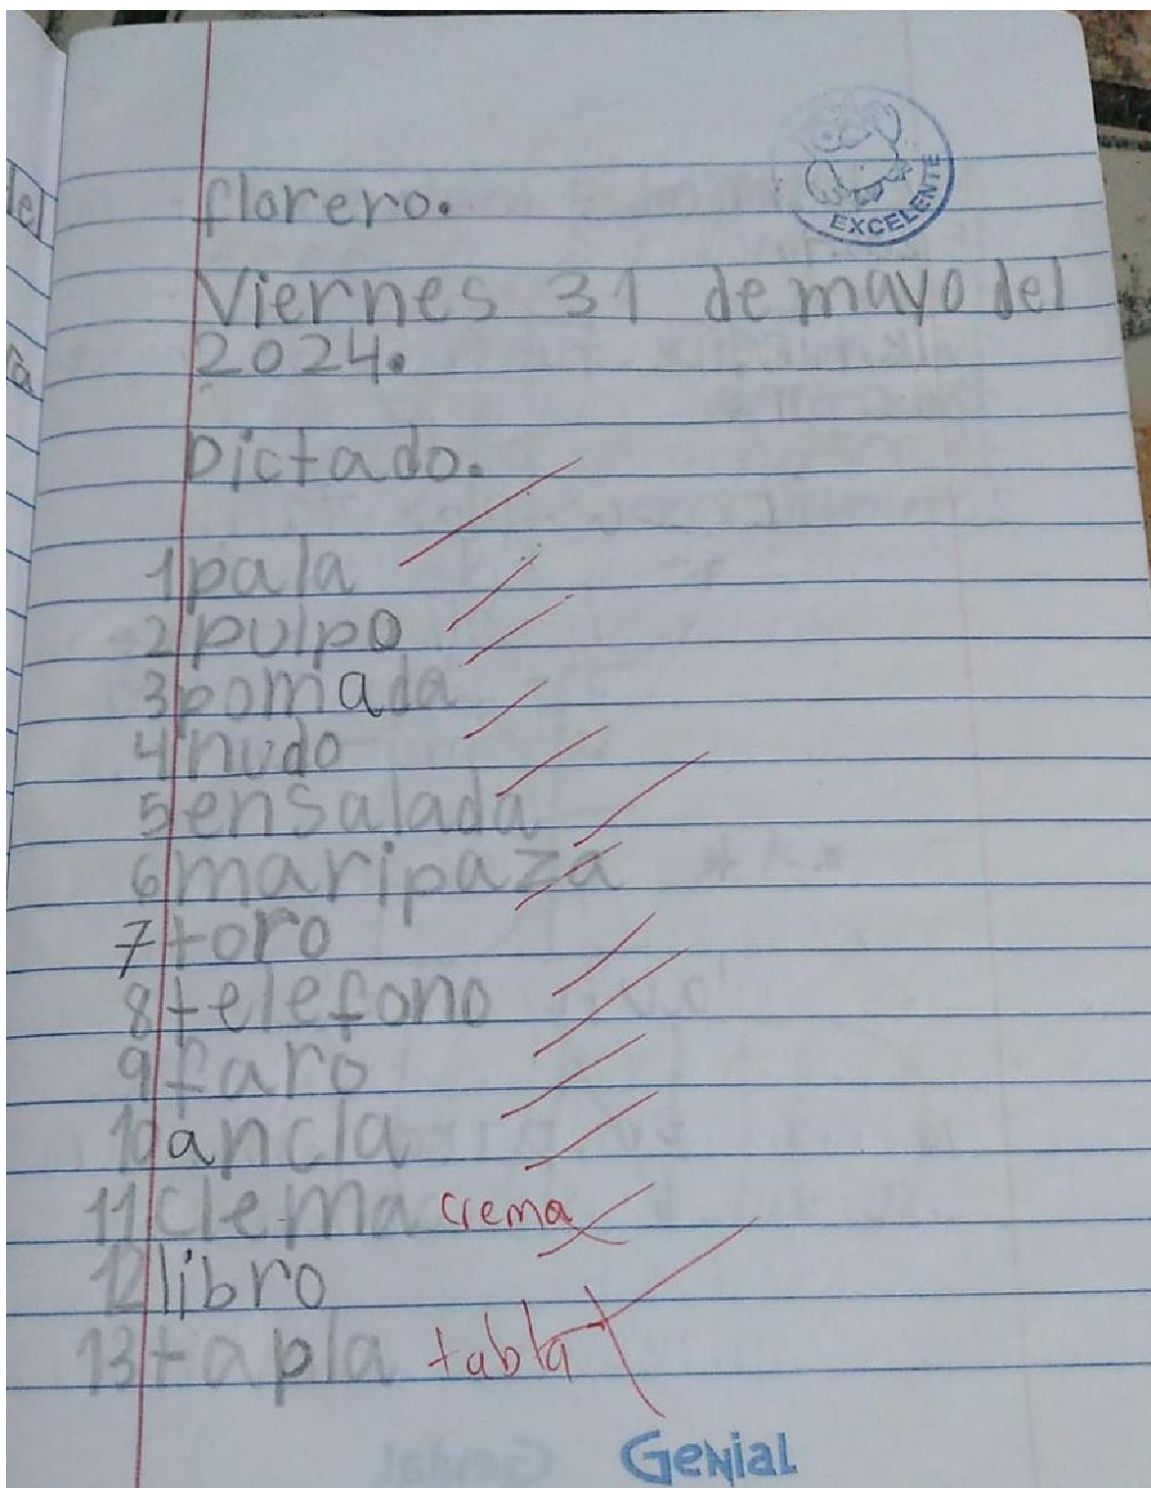 EXCELENTE
florero.
Viernes 31 de mayo del
2024.
Dictado.
1 pala
2 pulpo
3 pomada
4 nudo
5 ensalada
6 maripaza
7 toro
8 telefono
9 faro
10 ancla
11 clema crema
12 libro
13 tapla tabla
Genial